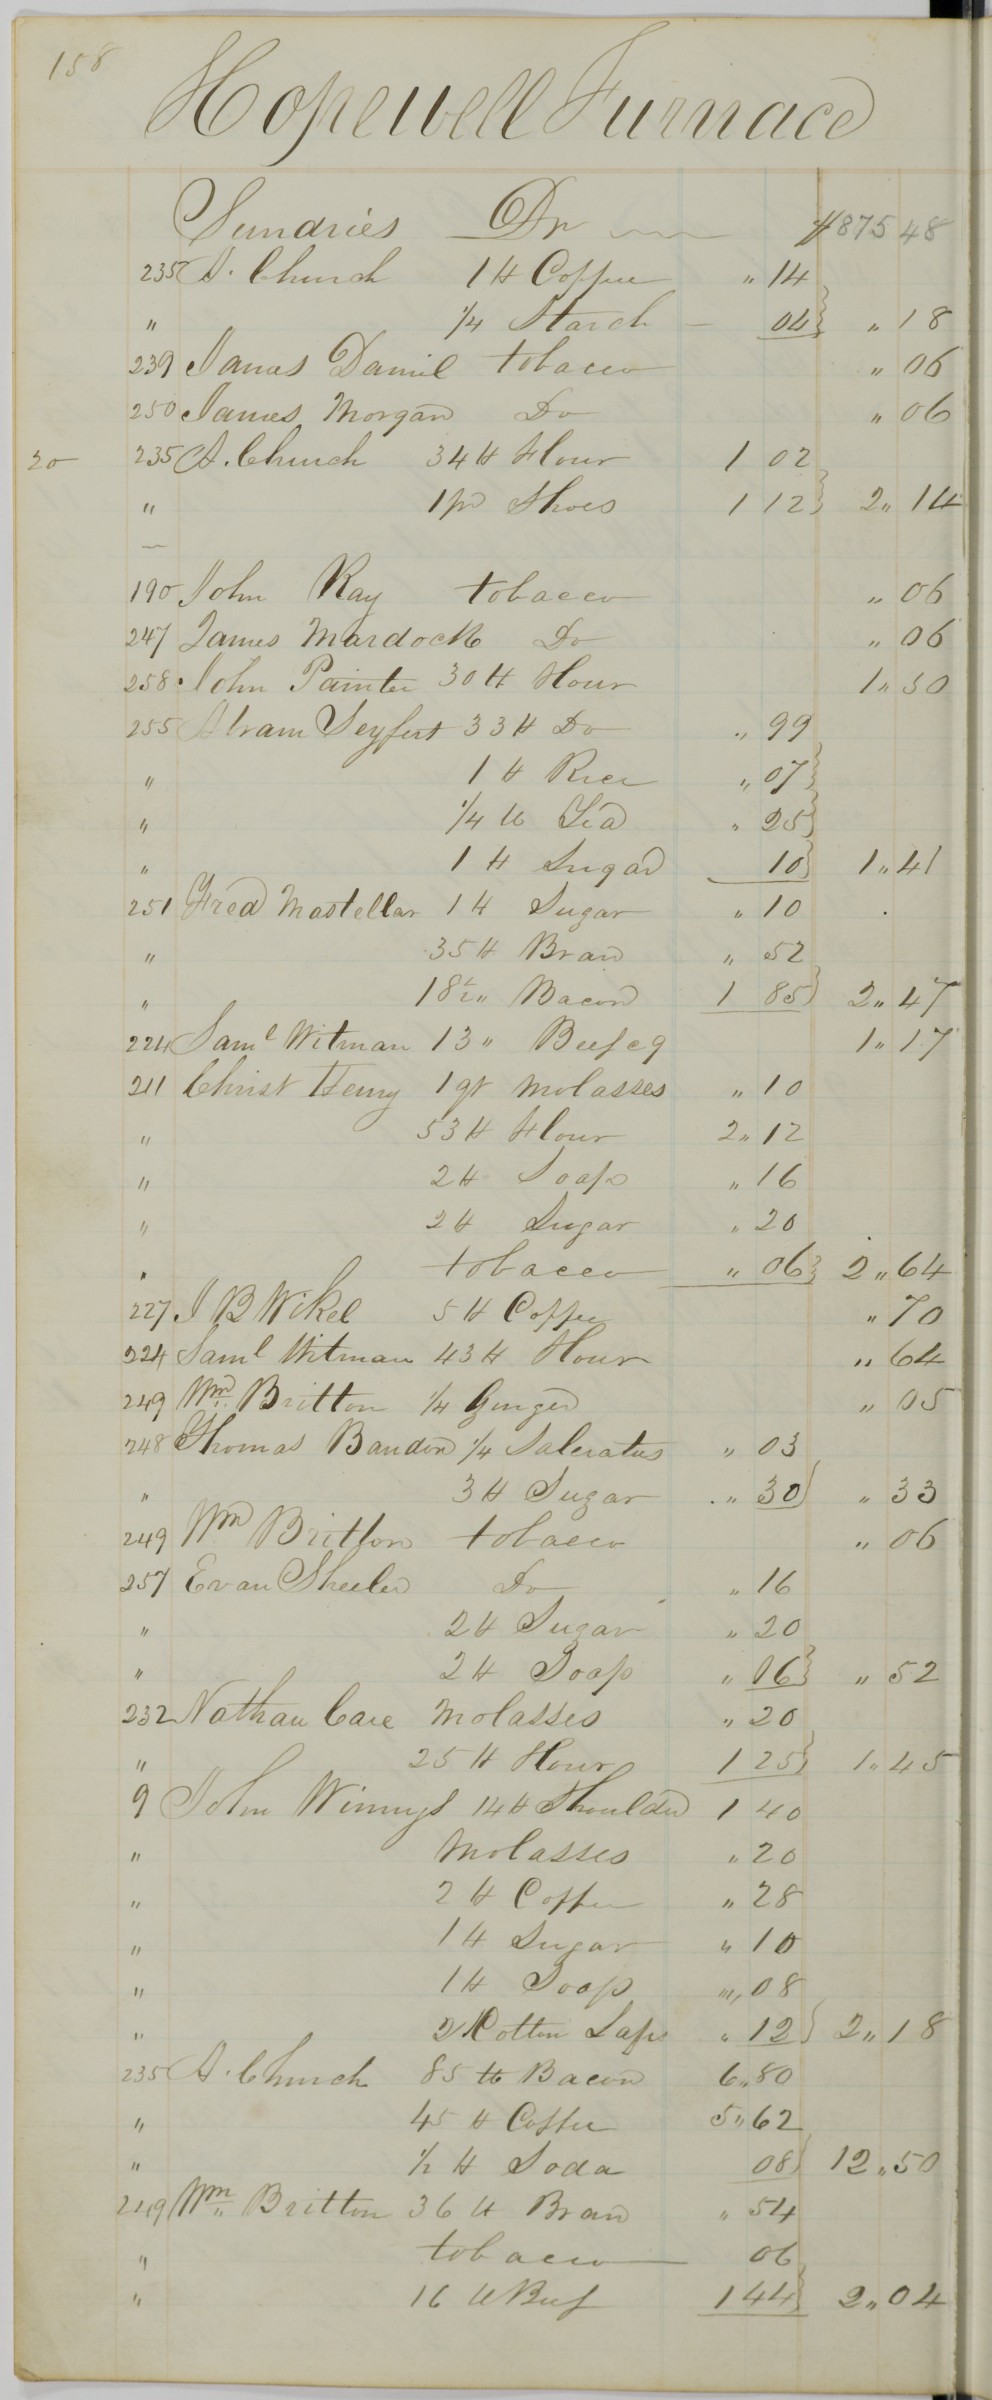 158
Hopewell Furnace
Sundries Dr $875 48
235 A. Church 1 lb Coffee " 14
" 1/4 Starch 04 " 18
239 James Daniel tobacco " 06
250 James Morgan Do " 06
20 235 A. Church 34 lb Flour 1 02
" 1 pr Shoes 1 12 2" 14
190 John Ray tobacco " 06
247 James Mardock Do " 06
258 John Painter 30 lb Flour 1" 50
255 Abram Seyfert 33 lb Do " 99
" 1 lb Rice " 07
" 1/4 lb Tea " 25
" 1 lb Sugar 10 1" 41
251 Fred Mastellar 1 lb Sugar " 10
" 35 lb Bran " 52
" 18 1/2 " Bacon 1 85 2" 47
224 Saml Witman 13 " Beef c 9 1" 17
211 Christ Henry 1 qt Molasses " 10
" 53 lb Flour 2" 12
" 2 lb Soap " 16
" 2 lb Sugar " 20
" tobacco " 06 2" 64
227 I B Wikel 5 lb Coffee " 70
224 Saml Witman 43 lb Flour " 64
249 Wm Britton 1/4 Ginger " 05
248 Thomas Bandon 1/4 Saleratus " 03
" 3 lb Sugar " 30 " 33
249 Wm Britton tobacco " 06
257 Evan Sheeler Do " 16
" 2 lb Sugar " 20
" 2 lb Soap " 16 " 52
232 Nathan Care Molasses " 20
" 25 lb Flour 1 25 1" 45
9 John Winnys 14 lb Shoulder 1 40
" Molasses " 20
" 2 lb Coffee " 28
" 1 lb Sugar " 10
" 1 lb Soap " 08
" 2 Cotton Laps " 12 2" 18
235 A. Church 85 lb Bacon 6" 80
" 45 lb Coffee 5" 62
" 1/2 lb Soda 08 12" 50
249 Wm Britton 36 lb Bran " 54
" tobacco 06
" 16 lb Beef 1 44 2" 04